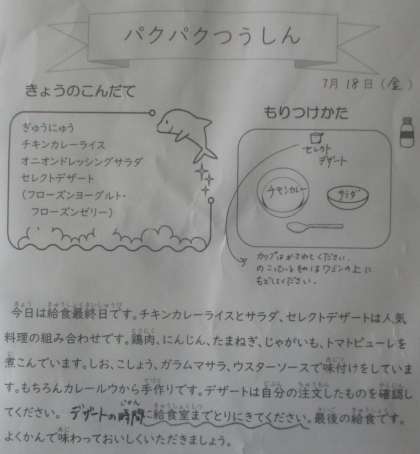 パクパクつうしん
7月18日(金)
きょうのこんだて
ぎゅうにゅう
チキンカレーライス
オニオンドレッシングサラダ
セレクトデザート
(フローズンヨーグルト・
フローズンゼリー)
もりつけかた
セレクト
デザート
チキンカレー
サラダ
カップはかさねてください。
のこっているものはワゴンの上に
もどしてください。
今日は給食最終日です。チキンカレーライスとサラダ、セレクトデザートは人気
料理の組み合わせです。鶏肉、にんじん、たまねぎ、じゃがいも、トマトピューレを
煮こんでいます。しお、こしょう、ガラムマサラ、ウスターソースで味付けをしていま
す。もちろんカレールウから手作りです。デザートは自分の注文したものを確認し
てください。デザートの時間に給食室までとりにきてください。最後の給食です。
よくかんで味わっておいしくいただきましょう。